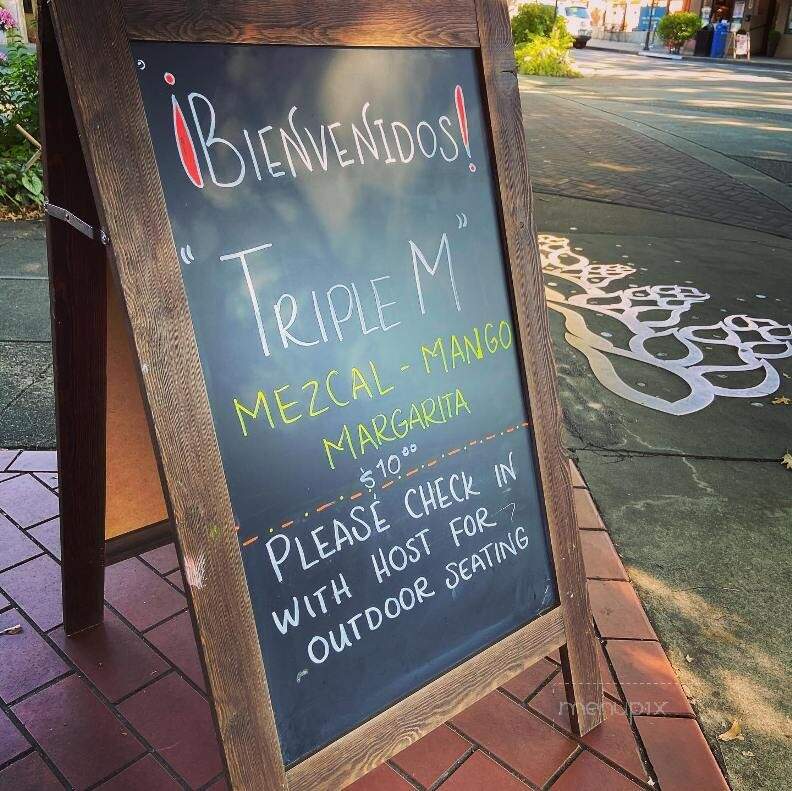 ¡BIENVENIDOS!
"TRIPLE M"
MEZCAL - MANGO
MARGARITA
$10⁰⁰
PLEASE CHECK IN
WITH HOST FOR
OUTDOOR SEATING
menupix